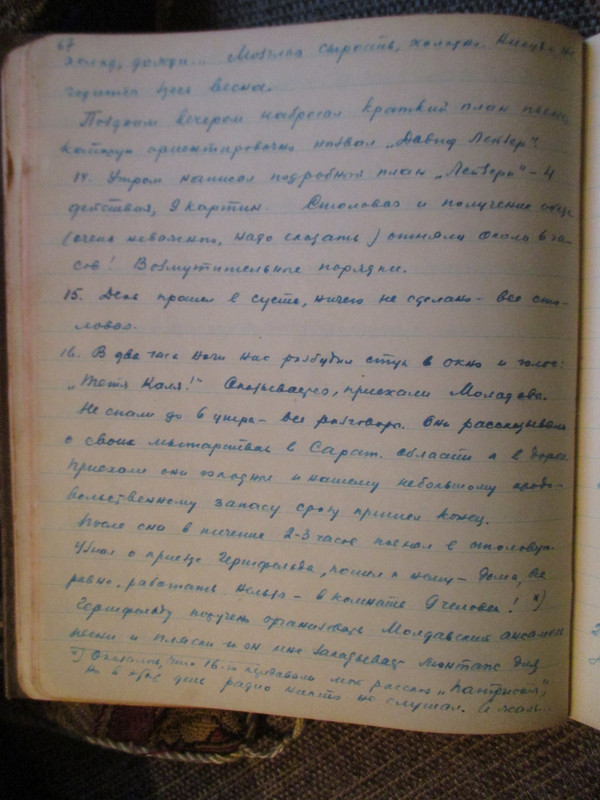 67
холод, дожди... Мозглая сырость, холодно. Никуда не
годится здесь весна.
Поздним вечером набросал краткий план пьесы,
которую ориентировочно назвал „Давид Лейзер".
14. Утром написал подробный план „Лейзера" - 4
действия, 9 картин. Столовая и получение обеда
(очень неважного, надо сказать) отняли около 6 ча-
сов! Возмутительные порядки.
15. День прошел в суете, ничего не сделано - все сто-
ловая.
16. В два часа ночи нас разбудил стук в окно и голос:
„Тетя Каля!" Оказывается, приехали
Не спали до 6 утра - все разговоры. Они рассказывали
о своих мытарствах в Сарат. области и в дороге
Приехали они голодные и нашему небольшому продо-
вольственному запасу сразу пришел конец.
После сна в течение 2-3 часов поехал в столовую.
Узнал о приезде Гершфельда, пошел к нему - дома, все
равно, работать нельзя - в комнате 9 человек! х)
Гершфельду поручено организовать Молдавский ансамбль
песни и пляски и он мне заказывает монтаж для
х) Оказалось, что 16-го передавали мой рассказ „Патриоты",
но в эти дни радио никто не слушал. И жаль...